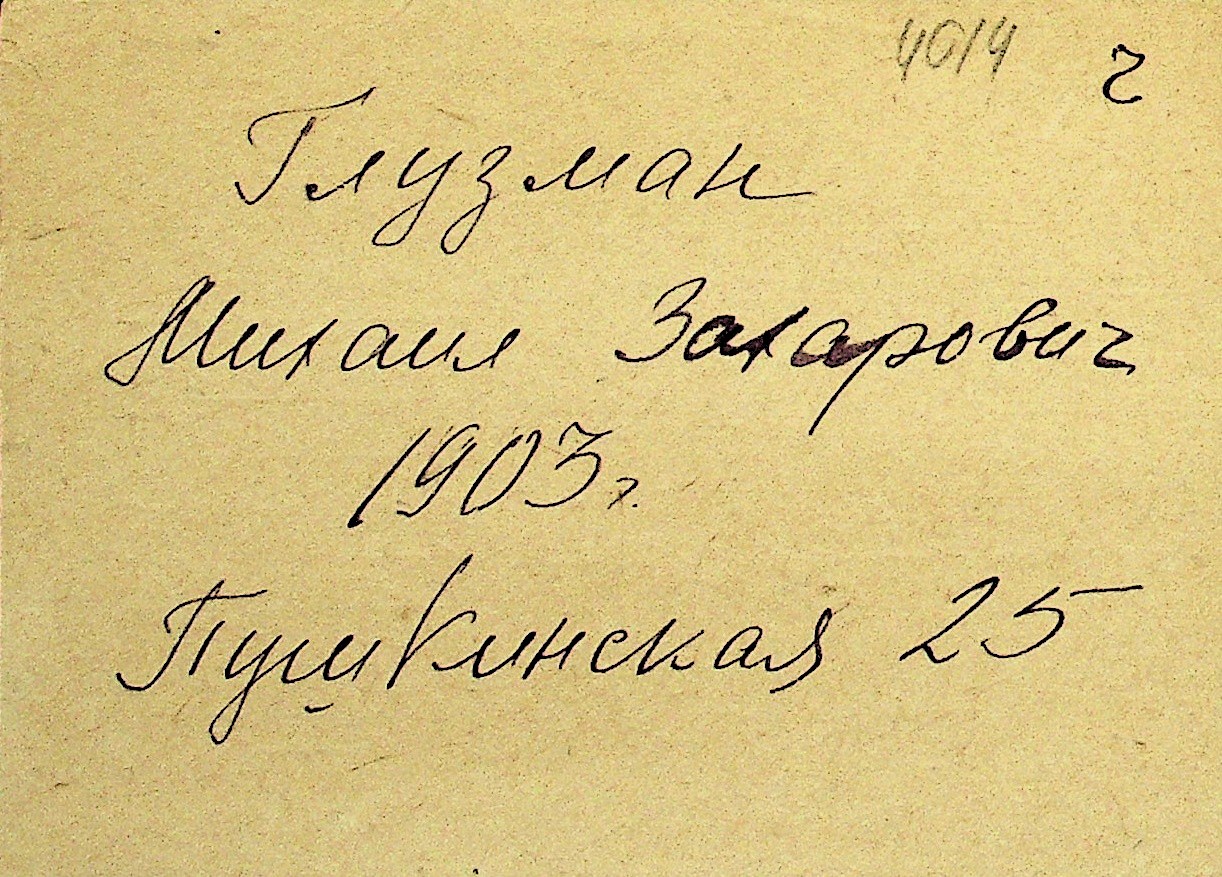 4014 ч
Глузман
Михаил Захарович
1903 г.
Пушкинская 25